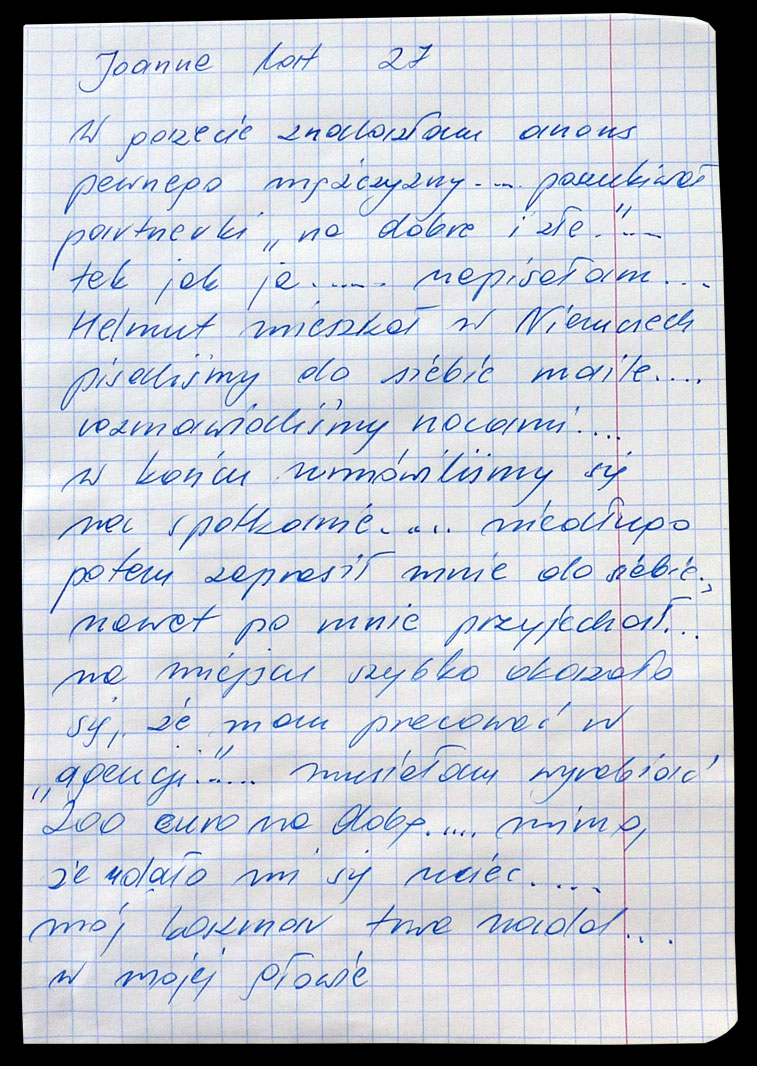 Joanna lat 27
W gazecie znalazłam anons
pewnego mężczyzny.... poszukiwał
partnerki „na dobre i złe."....
tak jak ja...... napisałam...
Helmut mieszkał w Niemczech
pisaliśmy do siebie maile....
rozmawialiśmy nocami....
w końcu umówiliśmy się
na spotkanie..... niedługo
potem zaprosił mnie do siebie.,
nawet po mnie przyjechał...
na miejscu szybko okazało
się, że mam pracować w
„agencji."..... musiałam wyrabiać
200 euro na dobę..... mimo,
że udało mi się uciec.....
mój koszmar trwa nadal...
w mojej głowie